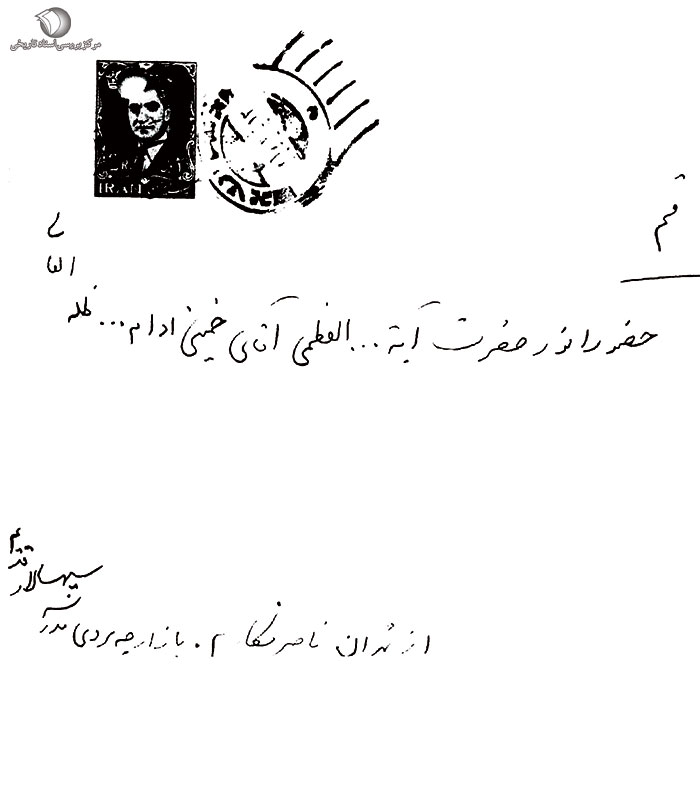 مرکز بررسی اسناد تاریخی
IRAN
قم
حضور انور حضرت آیة...العظمی آقای خمینی ادام...ظله
العا
لی
از تهران ناصر مکا م . بازارچه مروی مدرسه
سپهسالار
قدیم